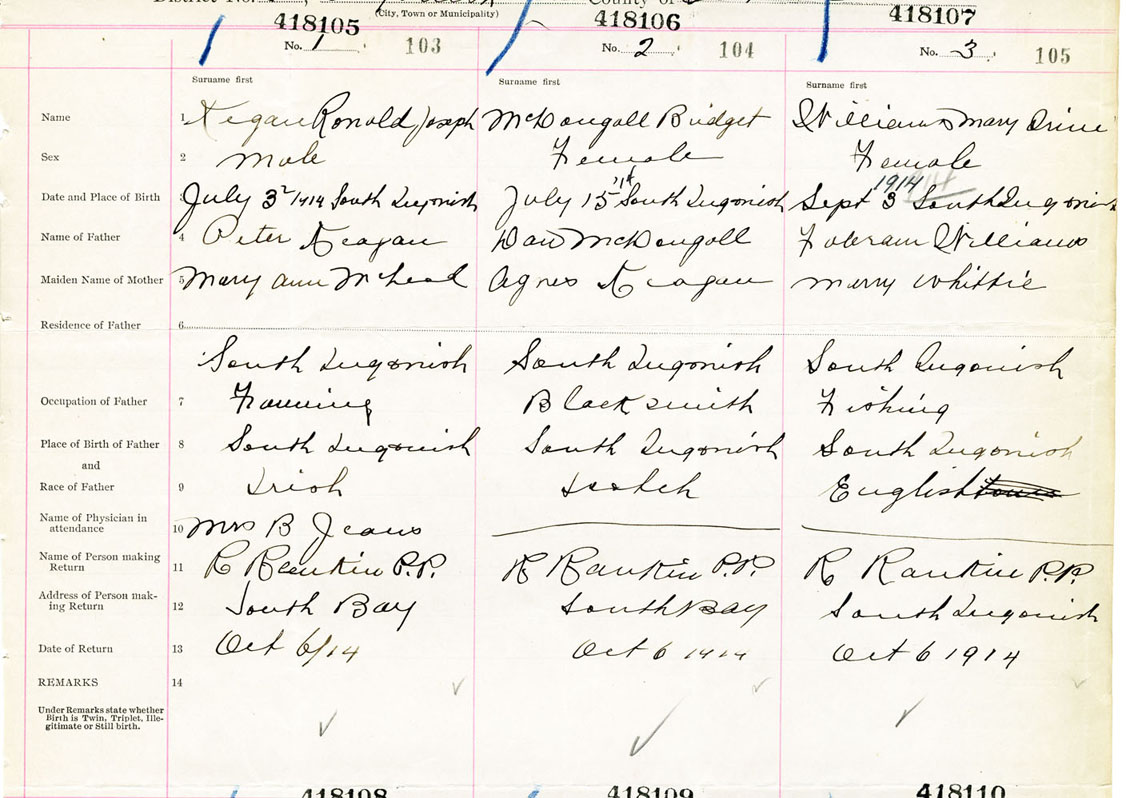 District No.
(City, Town or Municipality)
County of
418105 418106 418107
No. 1 103 No. 2 104 No. 3 105
Surname first Surname first Surname first
Name 1 Kegan Ronald Joseph McDougall Bridget Williams Mary
Sex 2 Male Female Female
Date and Place of Birth 3 July 3 1914 South Ingonish July 15 '14 South Ingonish Sept 3 1914 South Ingonish
Name of Father 4 Peter Keagan Dan McDougall Williams
Maiden Name of Mother 5 Mary Ann McLeod Agnes Keagan Mary Whittie
Residence of Father 6
South Ingonish South Ingonish South Ingonish
Occupation of Father 7 Farming Blacksmith Fishing
Place of Birth of Father 8 South Ingonish South Ingonish South Ingonish
and
Race of Father 9 Irish Scotch English
Name of Physician in
attendance 10 Mrs B Jeans
Name of Person making
Return 11 R Rankin P.P. R Rankin P.P. R Rankin P.P.
Address of Person mak-
ing Return 12 South Bay South Bay South Ingonish
Date of Return 13 Oct 6/14 Oct 6 1914 Oct 6 1914
REMARKS 14
Under Remarks state whether
Birth is Twin, Triplet, Ille-
gitimate or Still birth.
418108 418109 418110